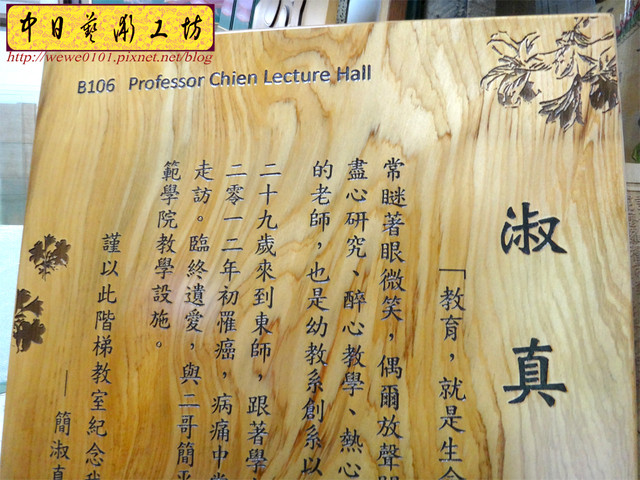 中日藝彫工坊
http://wewe0101.pixnet.net/blog
B106 Professor Chien Lecture Hall
淑真
「教育，就是生命
常瞇著眼微笑，偶爾放聲
盡心研究、醉心教學、熱心
的老師，也是幼教系創系以
二十九歲來到東師，跟著學
二零一二年初罹癌，病痛中
走訪。臨終遺愛，與二哥簡
範學院教學設施。
謹以此階梯教室紀念
——簡淑真